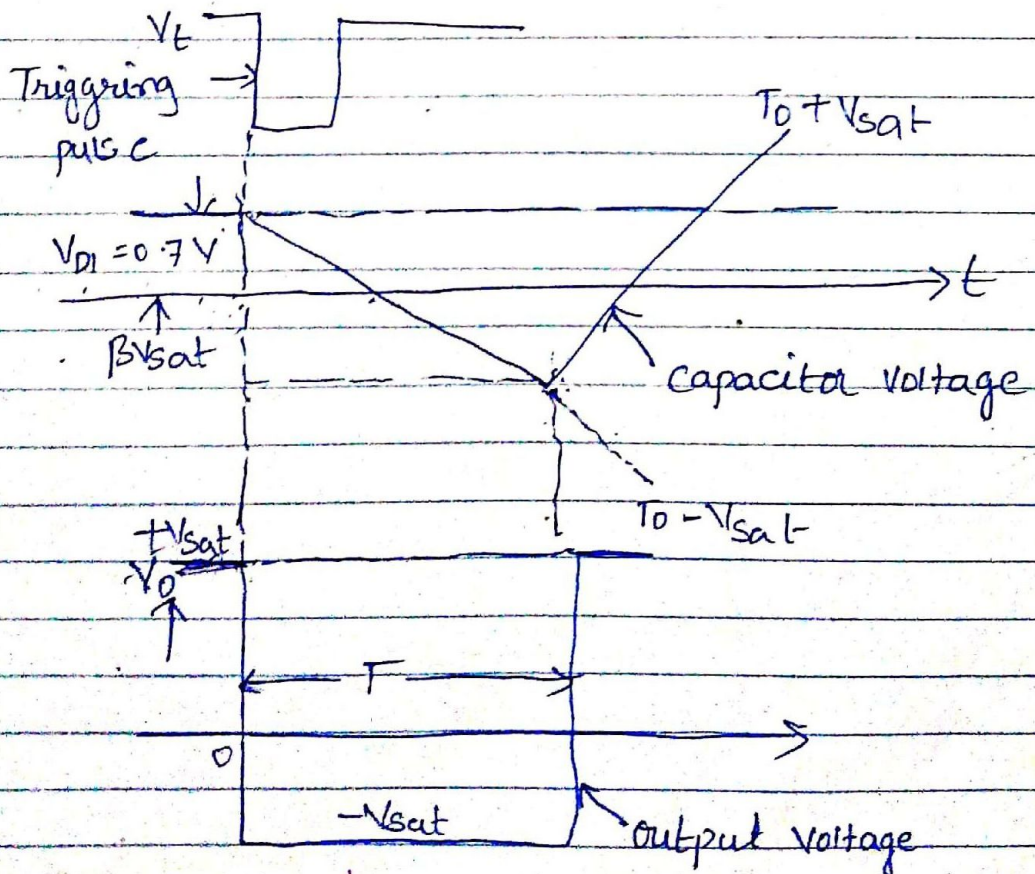 Vt
Triggring
pulse
To + Vsat
VD1 = 0.7 V
t
βVsat
capacitor voltage
To - Vsat
+Vsat
Vo
T
0
-Vsat
output voltage